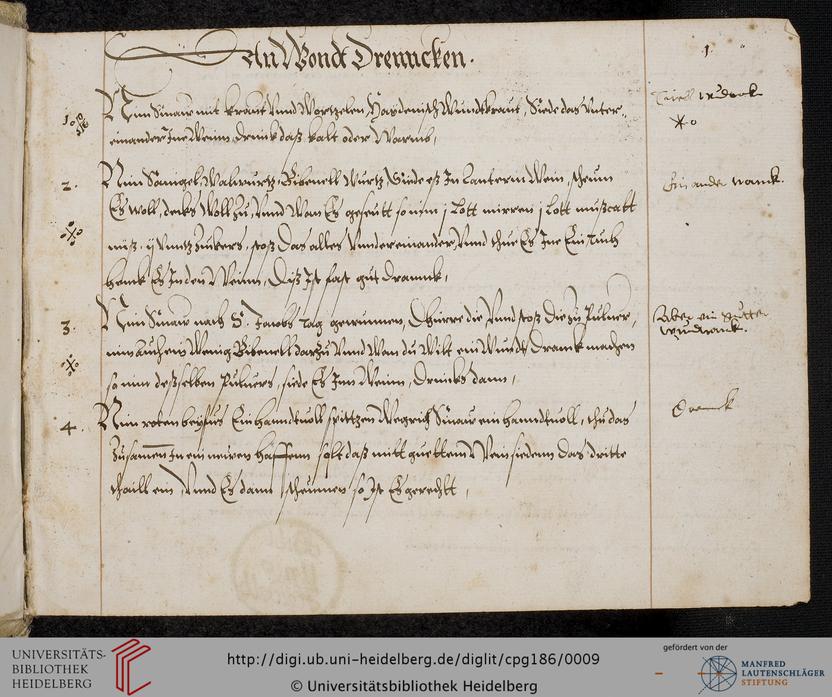 An Wondt Drenncken.
1.
1.
Nim Sinaw mit kraut Vnnd Wortzelen, Haydenisch Wundtkraut, Siede das Vnter-
einander Jne Weinn, drinck daß kalt oder Warmb,
2.
Nim Sanigel, Walwurtz, Bibenell Wurtz Siede eß Jn lauterm Wein, scheum
Es woll, decks Woll zu, Vnnd Wan Es geseutt so nim j Lott mirren j Lott mußcatt
nuß, ij Vnntz Zuckers, stoß das alles Vndereinander, Vnnd thue Es Jne Ein tuch
henck Es Jn den Weinn, Diß Jst fast gut dranck,
Ein ander tranck.
3.
Nim Sinaw nach S. Jacobs Tag gewunnen, Dhürre die Vnnd stoß die zu Puluer,
nim auch ein Wenig Bibenell darzu Vnnd Wan du Wilt ein Wundt Dranck machen
so nim deßselben Puluers, siede Es Jnn Weinn, Drincks dann,
Aber ein gutter
Wundtranck.
4.
Nim roten beyfus Ein hanndtuoll spittzen Wegrich Sinaw ein hanndtuoll, thu das
Zusamen Jn ein neuen haffenn solt daß mitt guettem Wein siedenn das dritte
thaill ein, Vnnd Es dann scheumen so Jst Es gerechtt,
Dranck
UNIVERSITÄTS-
BIBLIOTHEK
HEIDELBERG
http://digi.ub.uni-heidelberg.de/diglit/cpg186/0009
© Universitätsbibliothek Heidelberg
gefördert von der
MANFRED
LAUTENSCHLÄGER
STIFTUNG